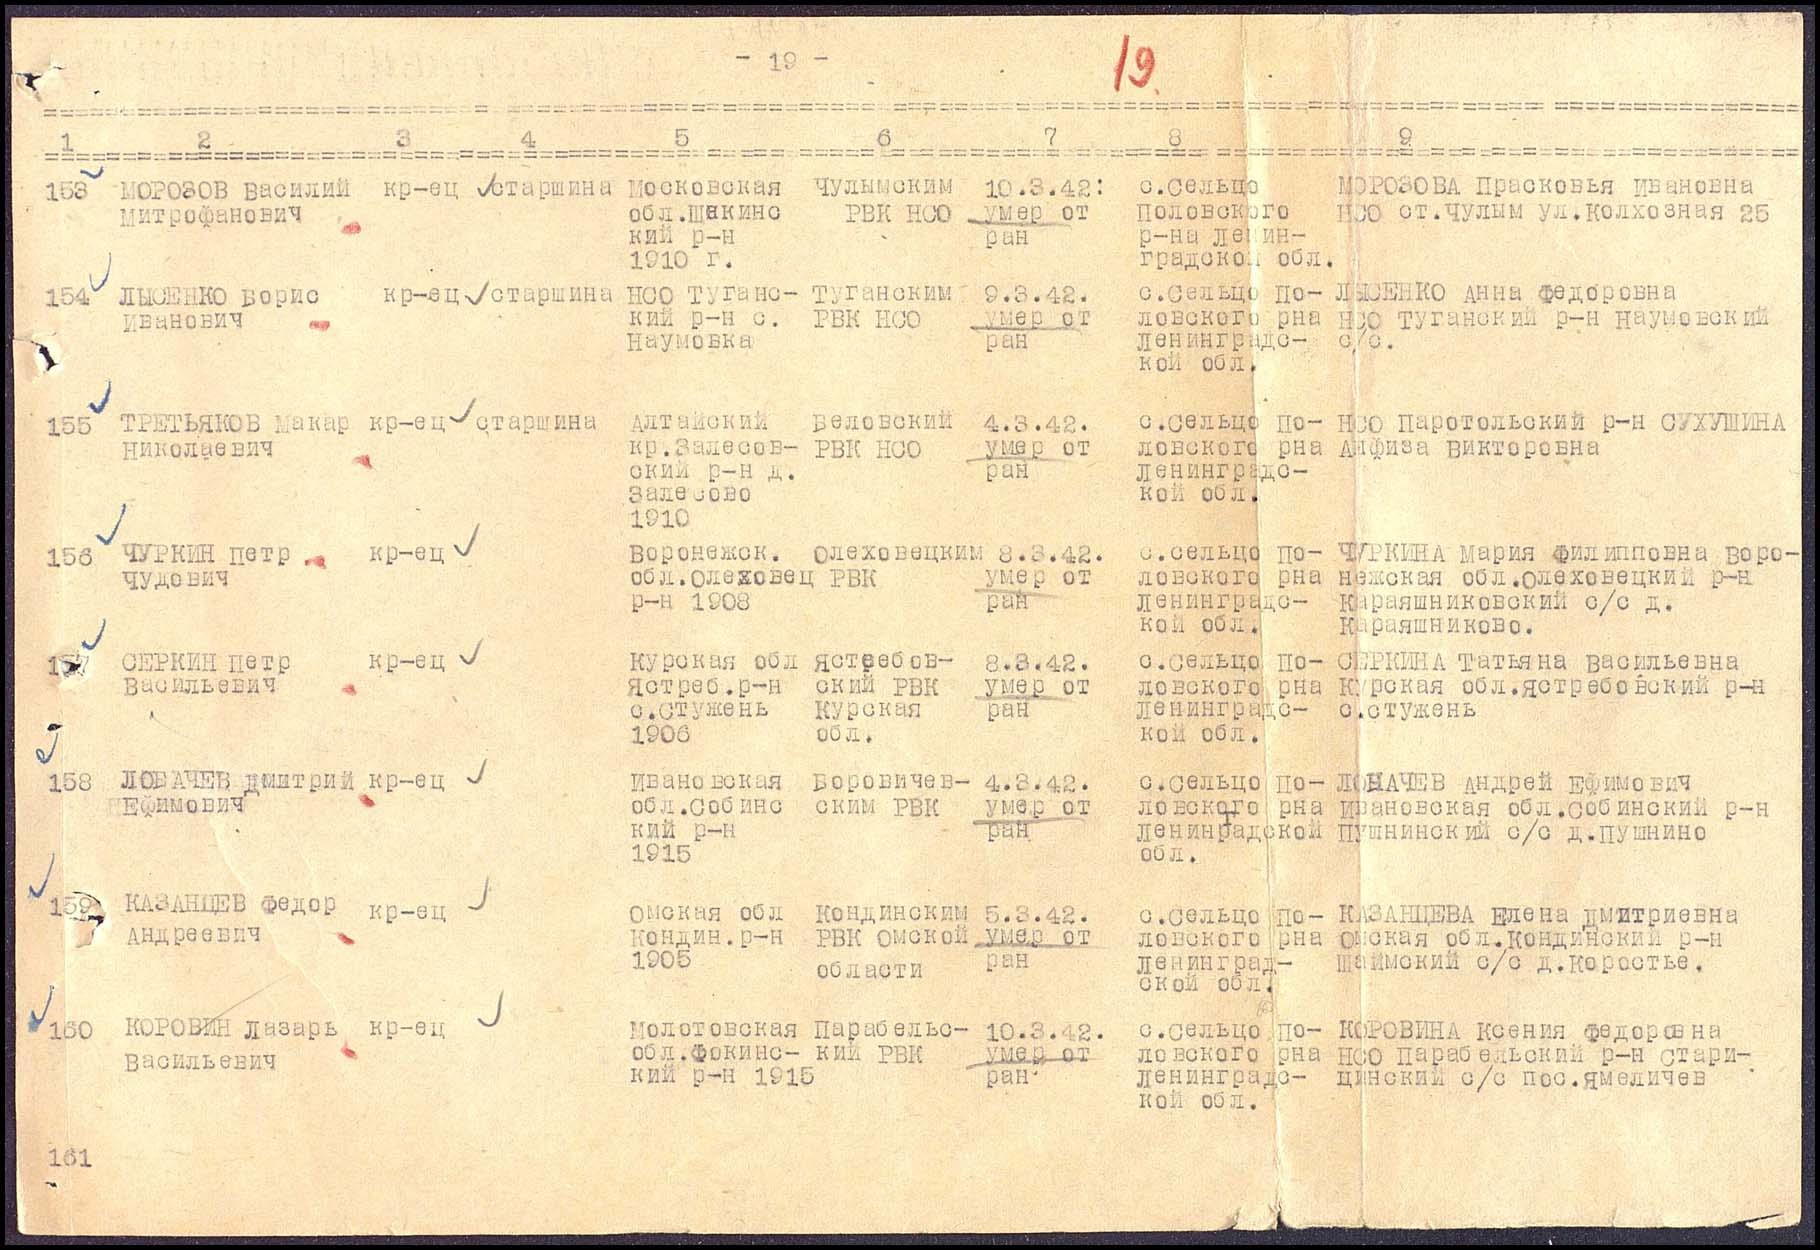 - 19 -
19.
1 2 3 4 5 6 7 8 9
153 МОРОЗОВ Василий кр-ец старшина Московская Чулымским 10.3.42: с.Сельцо МОРОЗОВА Прасковья Ивановна
Митрофанович обл.Шакинс РВК НСО умер от Половского НСО ст.Чулым ул.Колхозная 25
кий р-н ран р-на Ленин-
1910 г. градской обл.
154 ЛЫСЕНКО Борис кр-ец старшина НСО Туганс- Туганским 9.3.42. с.Сельцо По- ЛЫСЕНКО Анна Федоровна
Иванович кий р-н с. РВК НСО умер от ловского рна НСО Туганский р-н Наумовский
Наумовка ран Ленинградс- с/с.
кой обл.
155 ТРЕТЬЯКОВ Макар кр-ец старшина Алтайский Беловский 4.3.42. с.Сельцо По- НСО Паротольский р-н СУХУШИНА
Николаевич кр.Залесов- РВК НСО умер от ловского рна Анфиза Викторовна
ский р-н д. ран Ленинградс-
Залесово кой обл.
1910
156 ЧУРКИН Петр кр-ец Воронежск. Олеховецким 8.3.42. с.сельцо По- ЧУРКИНА Мария Филипповна Воро-
Чудович обл.Олеховец РВК умер от ловского рна нежская обл.Олеховецкий р-н
р-н 1908 ран Ленинградс- Караяшниковский с/с д.
кой обл. Караяшниково.
157 СЕРКИН Петр кр-ец Курская обл Ястребов- 8.3.42. с.Сельцо По- СЕРКИНА Татьяна Васильевна
Васильевич Ястреб.р-н ский РВК умер от ловского рна Курская обл.Ястребовский р-н
с.Стужень Курская ран Ленинградс- с.Стужень
1906 обл. кой обл.
158 ЛОБАЧЕВ Дмитрий кр-ец Ивановская Боровичев- 4.3.42. с.Сельцо По- ЛОНАЧЕВ Андрей Ефимович
Ефимович обл.Собинс ским РВК умер от ловского рна Ивановская обл.Собинский р-н
кий р-н ран Ленинградской Пушнинский с/с д.Пушнино
1915 обл.
159 КАЗАНЦЕВ Федор кр-ец Омская обл Кондинским 5.3.42. с.Сельцо По- КАЗАНЦЕВА Елена Дмитриевна
Андреевич Кондин.р-н РВК Омской умер от ловского рна Омская обл.Кондинский р-н
1905 области ран Ленинград- Шаимский с/с д.Коростье.
ской обл.
160 КОРОВИН Лазарь кр-ец Молотовская Парабельс- 10.3.42. с.Сельцо По- КОРОВИНА Ксения Федоровна
Васильевич обл.Фокинс- кий РВК умер от ловского рна НСО Парабельский р-н Стари-
кий р-н 1915 ран Ленинградс- цинский с/с пос.Ямеличев
кой обл.
161